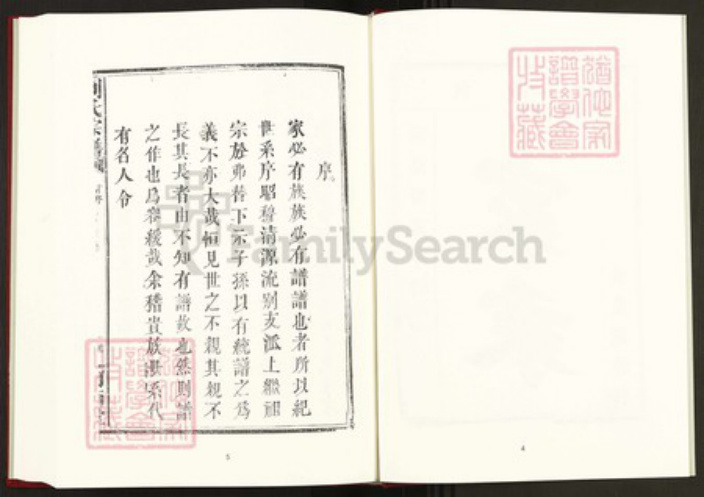 序
家必有族族必有譜譜也者所以紀
世系序昭穆清源流別支派上繼祖
宗於弗替下示子孫以有統譜之為
義不亦大哉恒見世之不親其親不
長其長者由不知有譜故也然則譜
之作也烏容緩哉余稽貴族世系代
有名人令
劉氏宗譜
猶他家
譜學會
收藏
FamilySearch
猶他家
譜學會
收藏
5
4